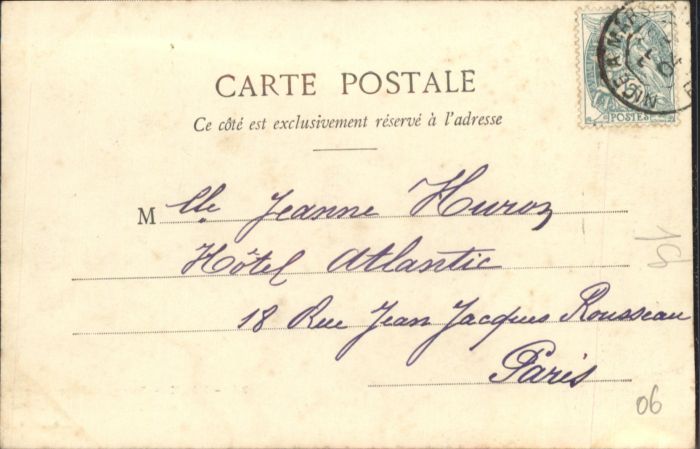 CARTE POSTALE
Ce côté est exclusivement réservé à l'adresse
POSTES
Mlle Jeanne Huron
Hôtel Atlantic
18 Rue Jean Jacques Rousseau
Paris
06